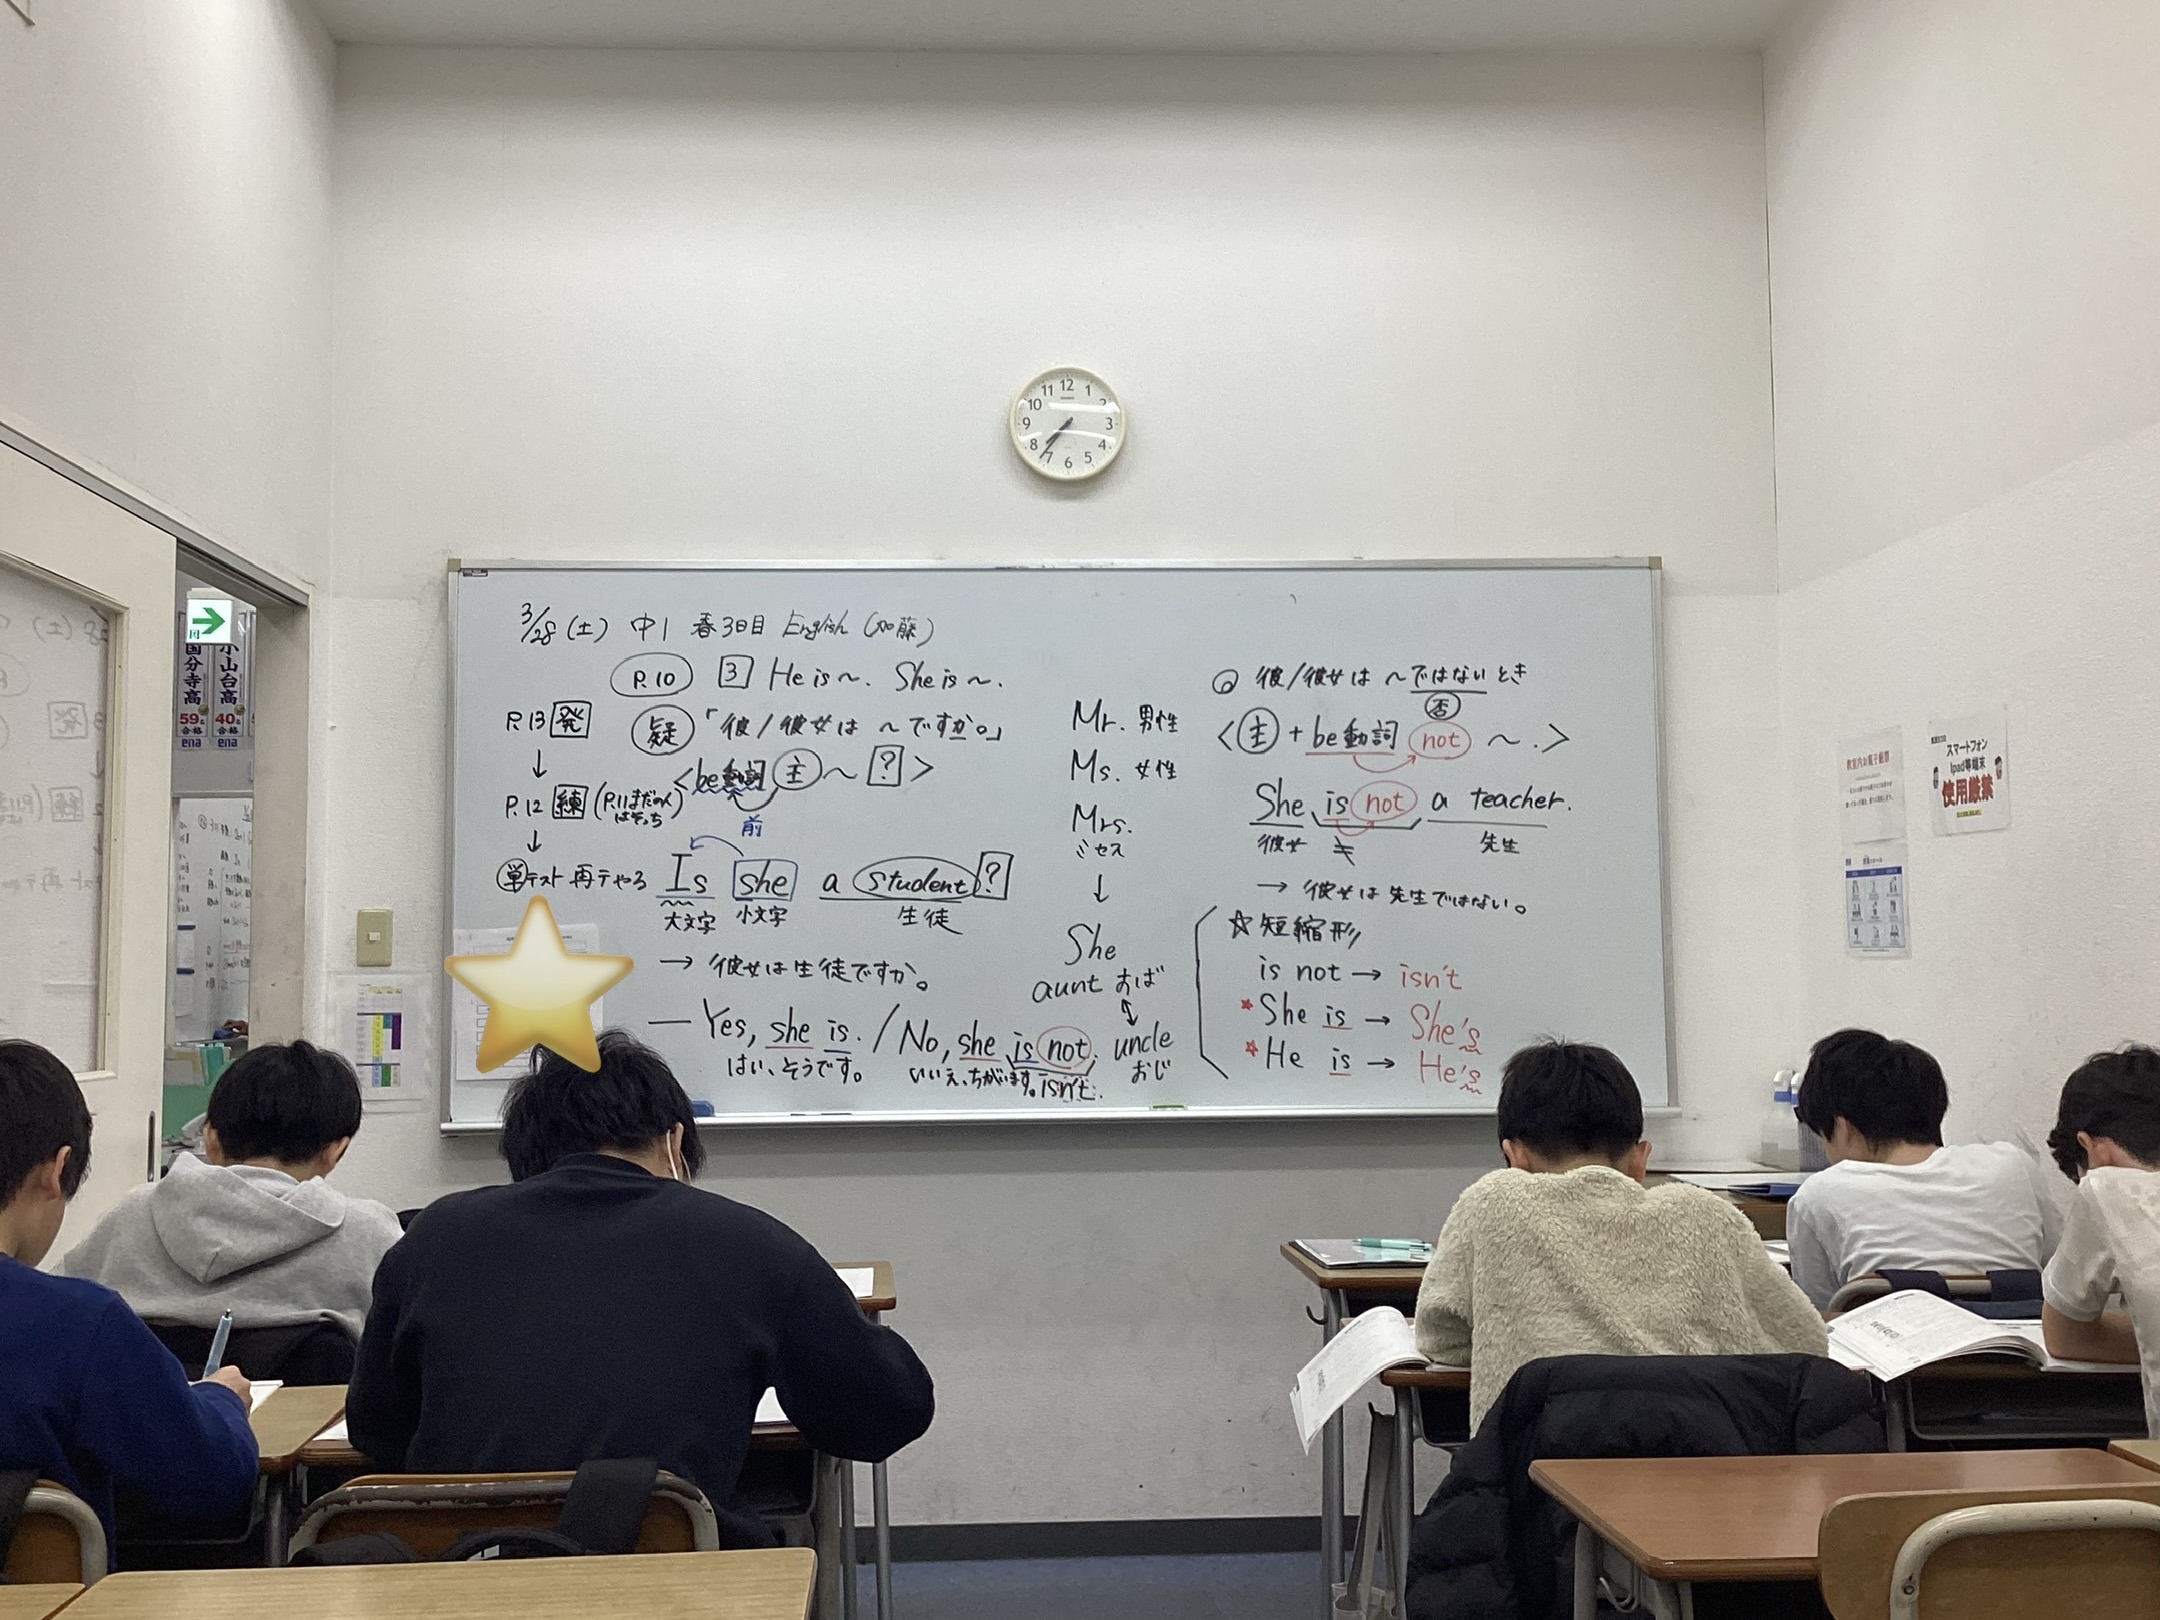 3/28(土) 中1 春3日目 English (加藤)
P.10 3 He is ~. She is ~.
P.13 発
↓
P.12 練 (P.11まだの人はそっち)
↓
単テスト 再テやろ
疑 「彼/彼女は ~ですか。」
<be動詞 主 ~ ?>
前
Is she a student?
大文字 小文字 生徒
→ 彼女は生徒ですか。
— Yes, she is. / No, she is not.
はい、そうです。 いいえ、ちがいます。 isn't.
Mr. 男性
Ms. 女性
Mrs.
ミセス
↓
She
aunt おば
↕
uncle
おじ
彼/彼女は ~ではないとき
否
<主 + be動詞 not ~.>
She is not a teacher.
彼女 ≠ 先生
→ 彼女は先生ではない。
☆短縮形
is not → isn't
★She is → She's
★He is → He's
11 12 1
10 2
9 3
8 4
7 6 5
国分寺高
59名
合格
ena
小山台高
40名
合格
ena
スマートフォン
Ipad等端末
使用厳禁